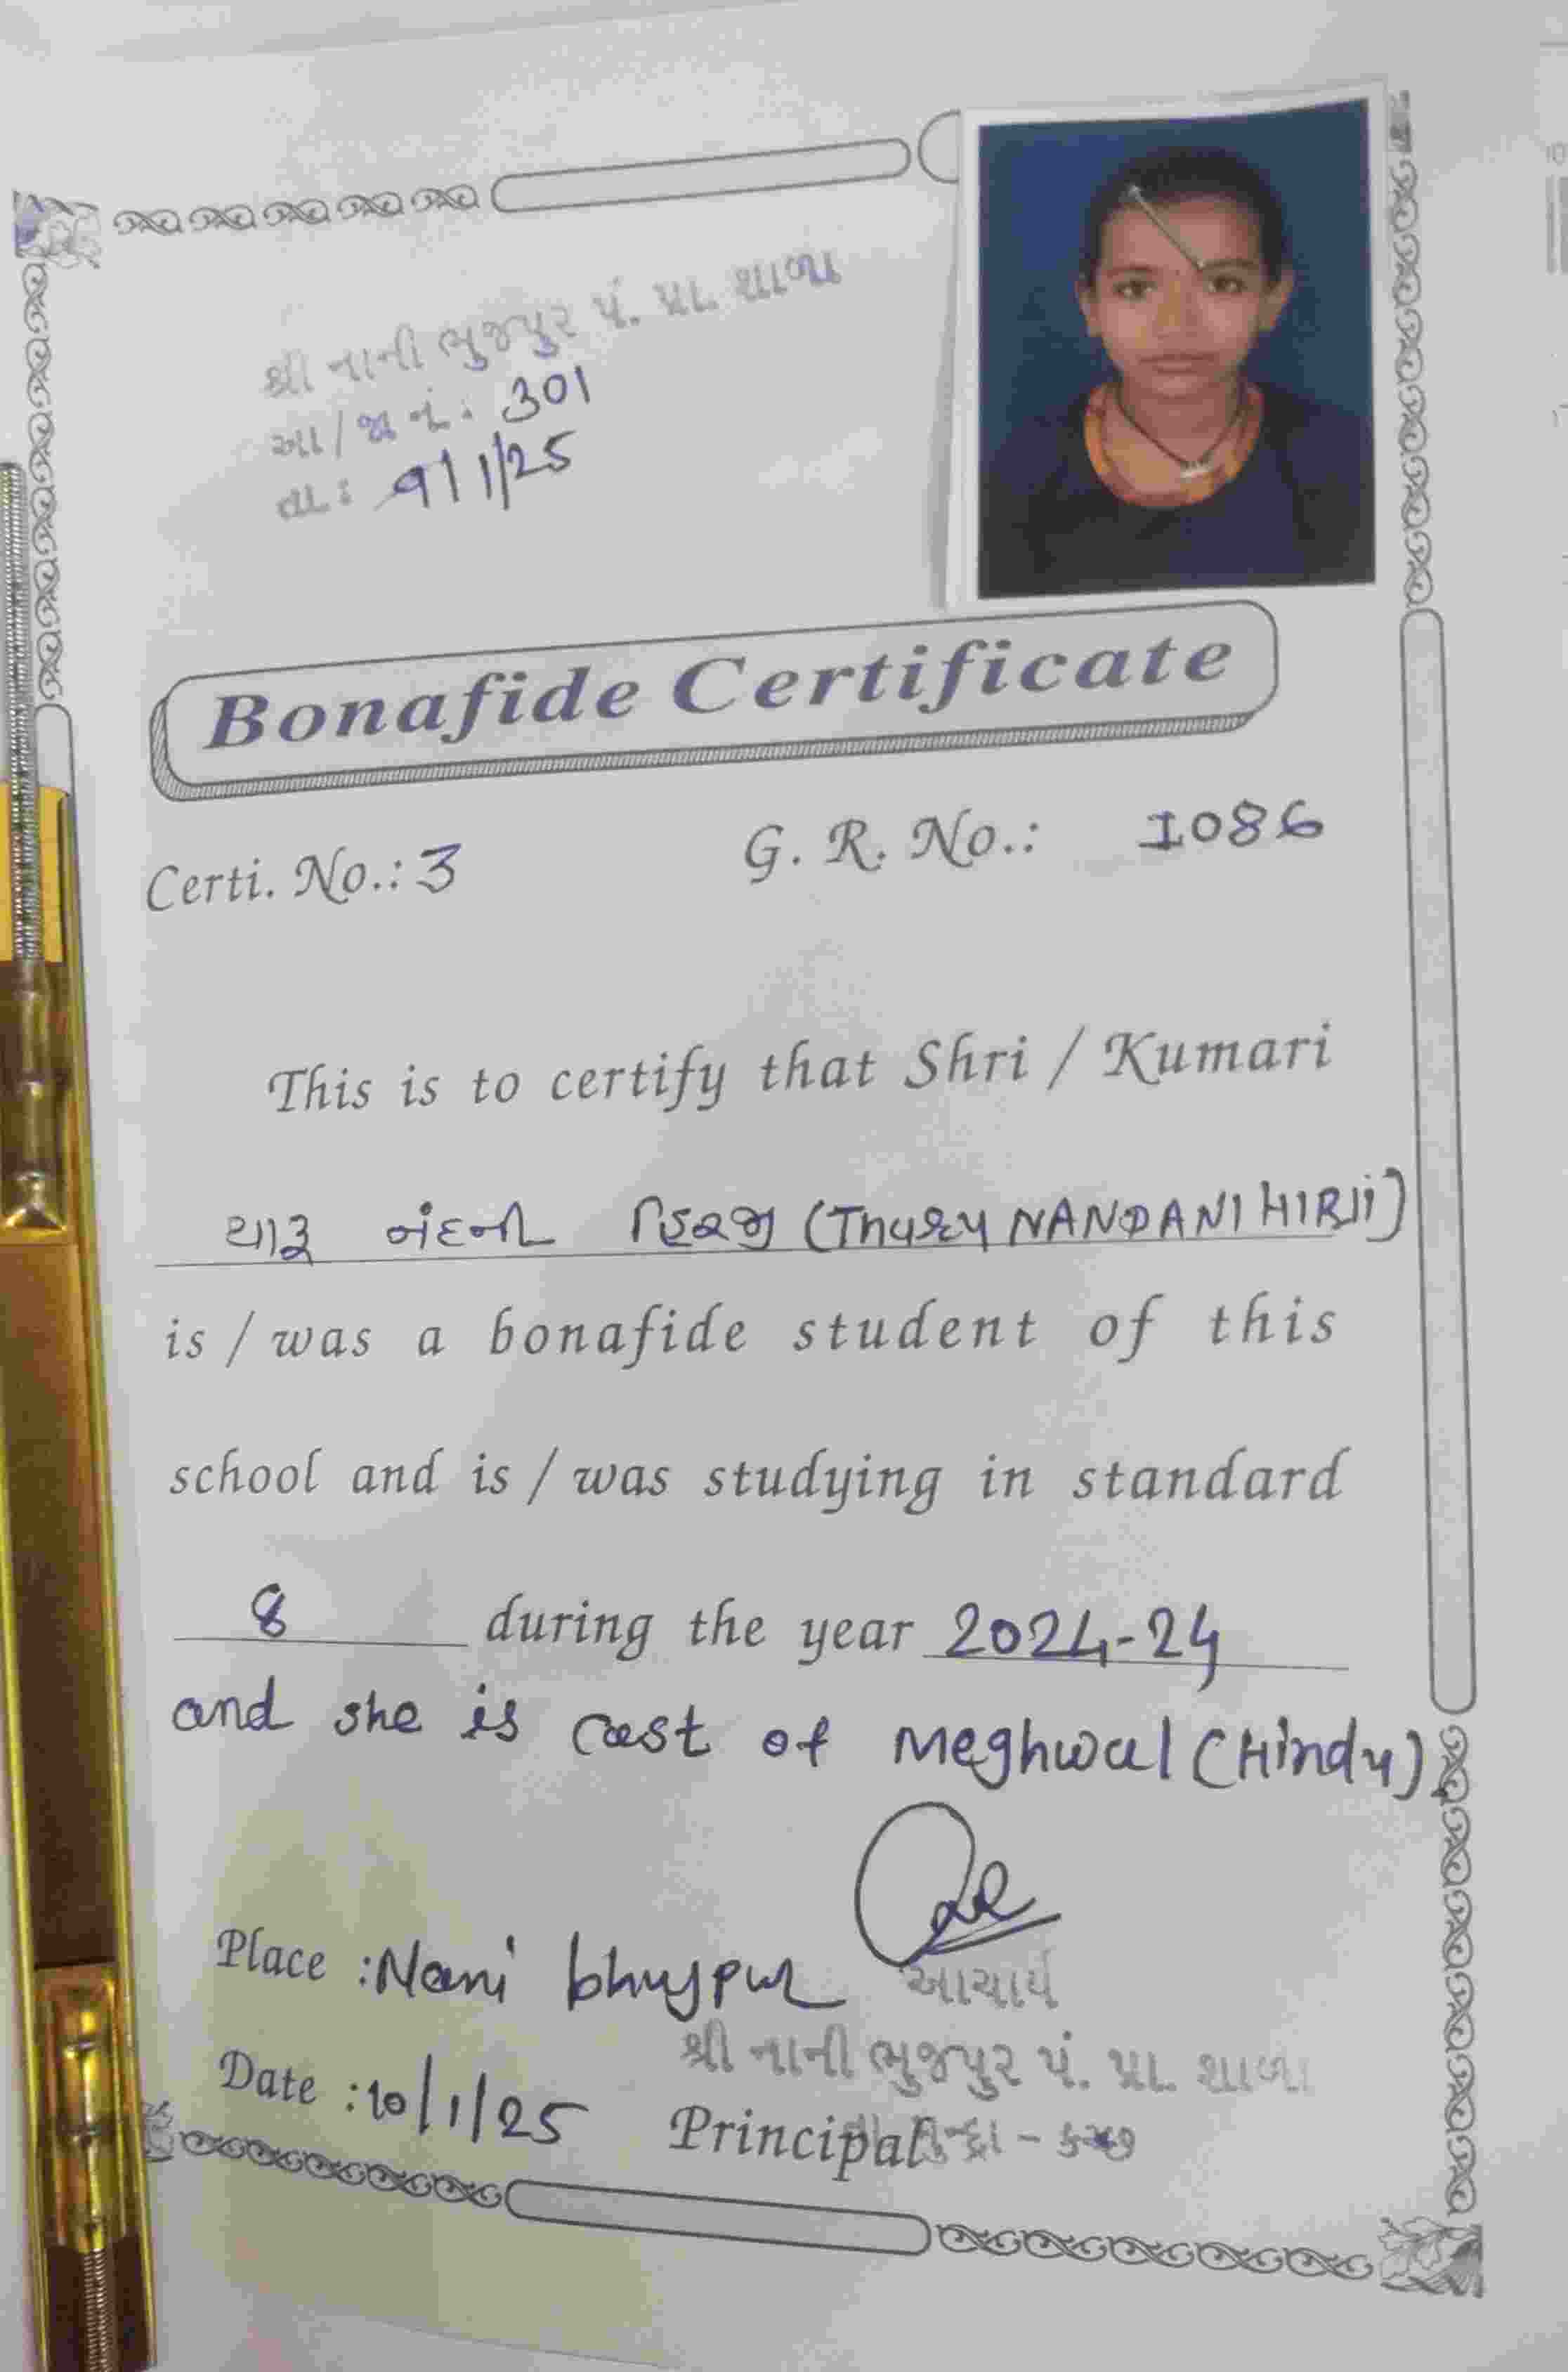 શ્રી નાની ભુજપુર પં. પ્રા. શાળા
આ/જા નં: 301
તા: 9/1/25
Bonafide Certificate
Certi. No.: 3 G. R. No.: 1086
This is to certify that Shri / Kumari
થારૂ નંદની હિરજી ( NANDANI HIRJI)
is / was a bonafide student of this
school and is / was studying in standard
8 during the year 2024-24
and she is cast of Meghwal (Hindu),
આચાર્ય
Place : Nani bhujpur
શ્રી નાની ભુજપુર પં. પ્રા. શાળા
Date : 10/1/25 Principal મુન્દ્રા - કચ્છ